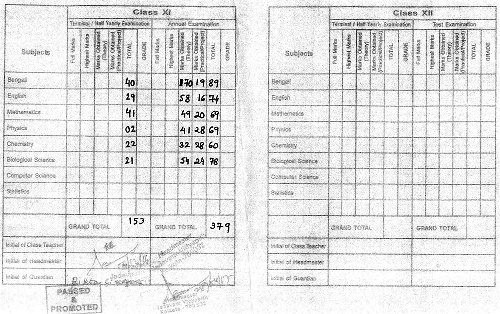 Class XI
Terminal / Half Yearly Examination Annual Examination
Subjects Full Marks Highest Marks Marks Obtained (Theory) Marks Obtained (Practical/Project) TOTAL GRADE Full Marks Highest Marks Marks Obtained (Theory) Marks Obtained (Practical/Project) TOTAL GRADE
Bengali 40 70 19 89
English 29 58 16 74
Mathematics 41 49 20 69
Physics 02 41 28 69
Chemistry 22 32 28 60
Biological Science 21 54 24 78
Computer Science
Statistics
GRAND TOTAL 153 GRAND TOTAL 379
Initial of Class Teacher
Initial of Headmaster
Initial of Guardian
PASSED
&
PROMOTED
Class XII
Terminal / Half Yearly Examination Test Examination
Subjects Full Marks Highest Marks Marks Obtained (Theory) Marks Obtained (Practical/Project) TOTAL GRADE Full Marks Highest Marks Marks Obtained (Theory) Marks Obtained (Practical/Project) TOTAL GRADE
Bengali
English
Mathematics
Physics
Chemistry
Biological Science
Computer Science
Statistics
GRAND TOTAL GRAND TOTAL
Initial of Class Teacher
Initial of Headmaster
Initial of Guardian